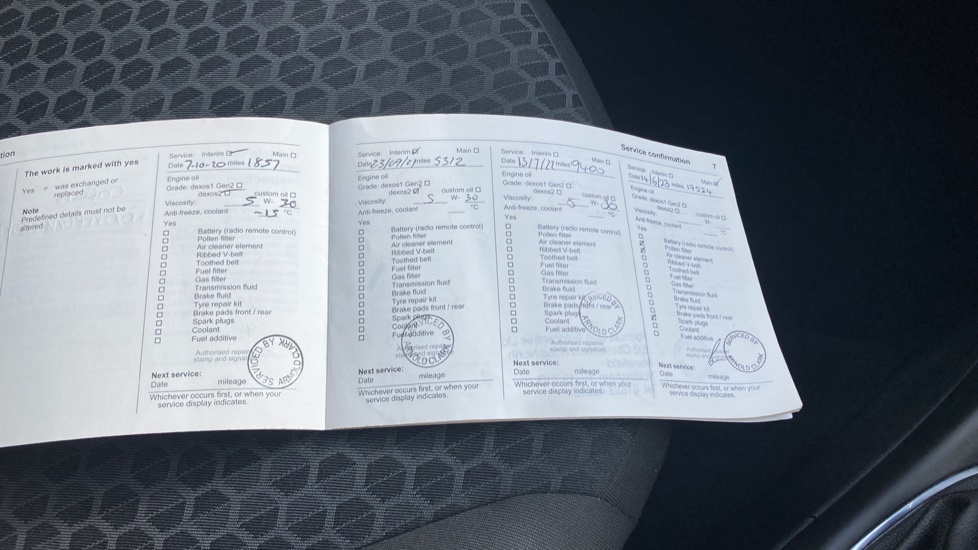 tion
The work is marked with yes
Yes = was exchanged or
replaced
Note
Predefined details must not be
altered.
Service: Interim ☑ Main ☐
Date 7-10-20 miles 1857
Engine oil
Grade: dexos1 Gen2 ☐
dexos2 ☐ custom oil ☐
Viscosity: 5 W- 30
Anti-freeze, coolant -15 °C
Yes
☐ Battery (radio remote control)
☐ Pollen filter
☐ Air cleaner element
☐ Ribbed V-belt
☐ Toothed belt
☐ Fuel filter
☐ Gas filter
☐ Transmission fluid
☐ Brake fluid
☐ Tyre repair kit
☐ Brake pads front / rear
☐ Spark plugs
☐ Coolant
☐ Fuel additive
Authorised repair
stamp and signat
SERVICED BY ARNOLD CLARK
Next service:
Date mileage
Whichever occurs first, or when your
service display indicates.
Service: Interim ☑ Main ☐
Date 23/09/21 miles 5312
Engine oil
Grade: dexos1 Gen2 ☐
dexos2 ☑ custom oil ☐
Viscosity: 5 W- 30
Anti-freeze, coolant °C
Yes
☐ Battery (radio remote control)
☐ Pollen filter
☐ Air cleaner element
☐ Ribbed V-belt
☐ Toothed belt
☐ Fuel filter
☐ Gas filter
☐ Transmission fluid
☐ Brake fluid
☐ Tyre repair kit
☐ Brake pads front / rear
☐ Spark plugs
☐ Coolant
☐ Fuel additive
SERVICED BY ARNOLD CLARK
Next service:
Date mileage
Whichever occurs first, or when your
service display indicates.
Service confirmation 7
Service: Interim ☐ Main ☐
Date 13/7/22 miles 9400
Engine oil
Grade: dexos1 Gen2 ☐
dexos2 ☐ custom oil
Viscosity: 5 W- 30
Anti-freeze, coolant °C
Yes
☐ Battery (radio remote control)
☐ Pollen filter
☐ Air cleaner element
☐ Ribbed V-belt
☐ Toothed belt
☐ Fuel filter
☐ Gas filter
☐ Transmission fluid
☐ Brake fluid
☐ Tyre repair kit
☐ Brake pads front / rear
☐ Spark plugs
☐ Coolant
☐ Fuel additive
SERVICED BY ARNOLD CLARK
Authorised repairer
stamp and signature
Next service:
Date mileage
Whichever occurs first, or when your
service display indicates.
Service: Interim ☐ Main ☑
Date 14/6/23 miles 17524
Engine oil
Grade: dexos1 Gen2 ☐
dexos2 ☐ custom oil ☐
Viscosity: W-
Anti-freeze, coolant °C
Yes
Battery (radio remote control)
Pollen filter
Air cleaner element
Ribbed V-belt
Toothed belt
Fuel filter
Gas filter
Transmission fluid
Brake fluid
Tyre repair kit
Brake pads front / rear
Spark plugs
Coolant
Fuel additive
SERVICED BY ARNOLD CLARK
Next service:
Date mileage
Whichever occurs first, or when your
service display indicates.